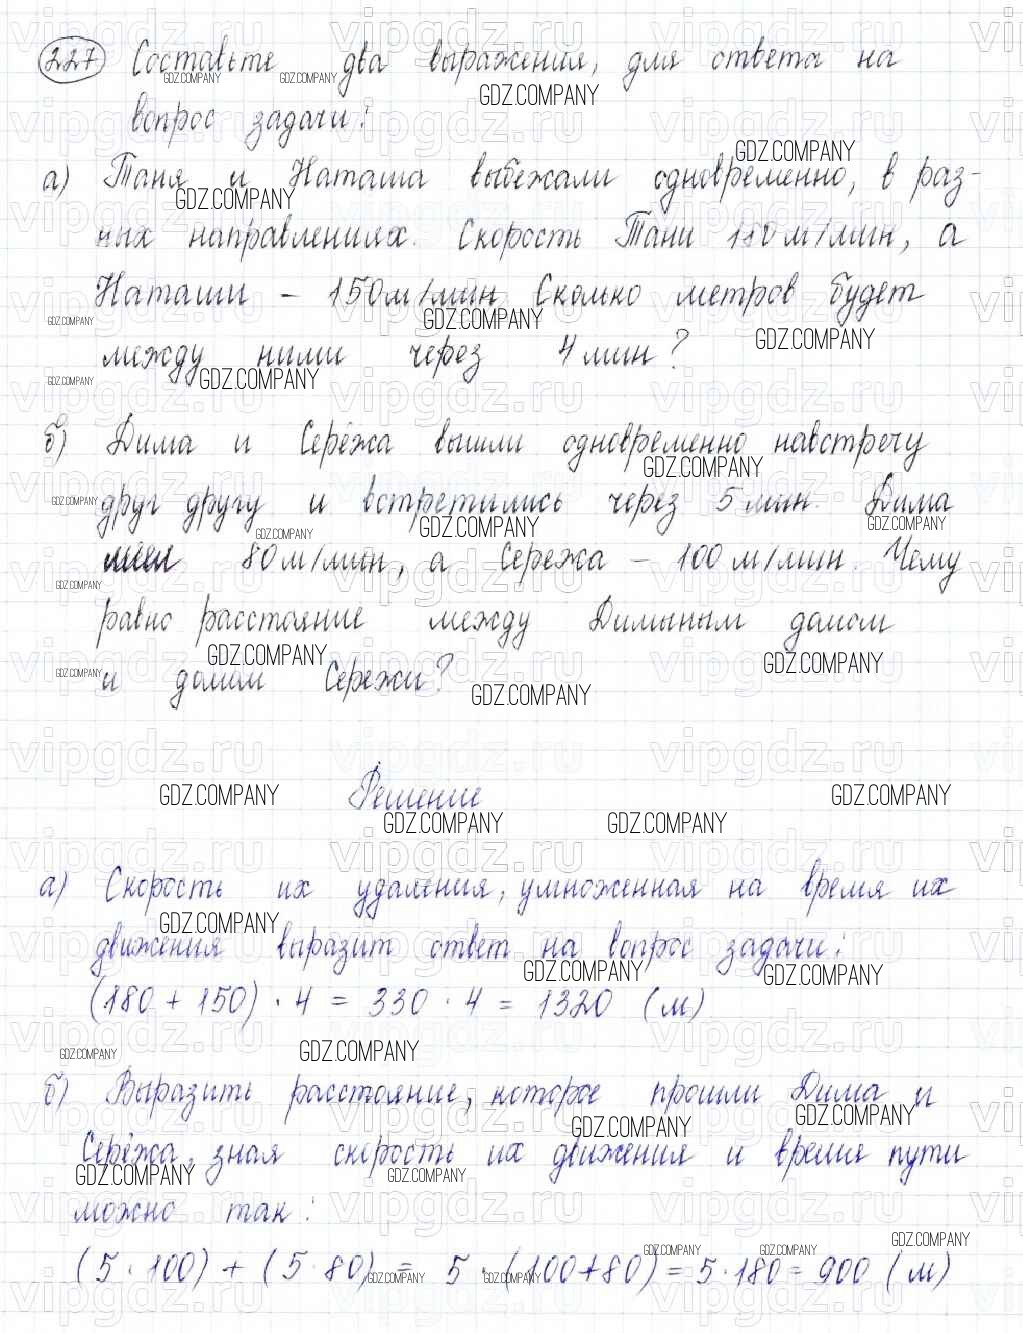 227 Составьте два выражения, для ответа на
вопрос задачи:
а) Таня и Наташа выбежали одновременно, в раз-
ных направлениях. Скорость Тани 180 м/мин, а
Наташи – 150 м/мин. Сколько метров будет
между ними через 4 мин?
б) Дима и Серёжа вышли одновременно навстречу
друг другу и встретились через 5 мин. Дима
80 м/мин, а Сережа – 100 м/мин. Чему
равно расстояние между Диминым домом
и домом Сережи?
Решение
а) Скорость их удаления, умноженная на время их
движения выразит ответ на вопрос задачи:
(180 + 150) · 4 = 330 · 4 = 1320 (м)
б) Выразить расстояние, которое прошли Дима и
Серёжа, зная скорость их движения и время пути
можно так:
(5 · 100) + (5 · 80) = 5 · (100+80) = 5 · 180 = 900 (м)